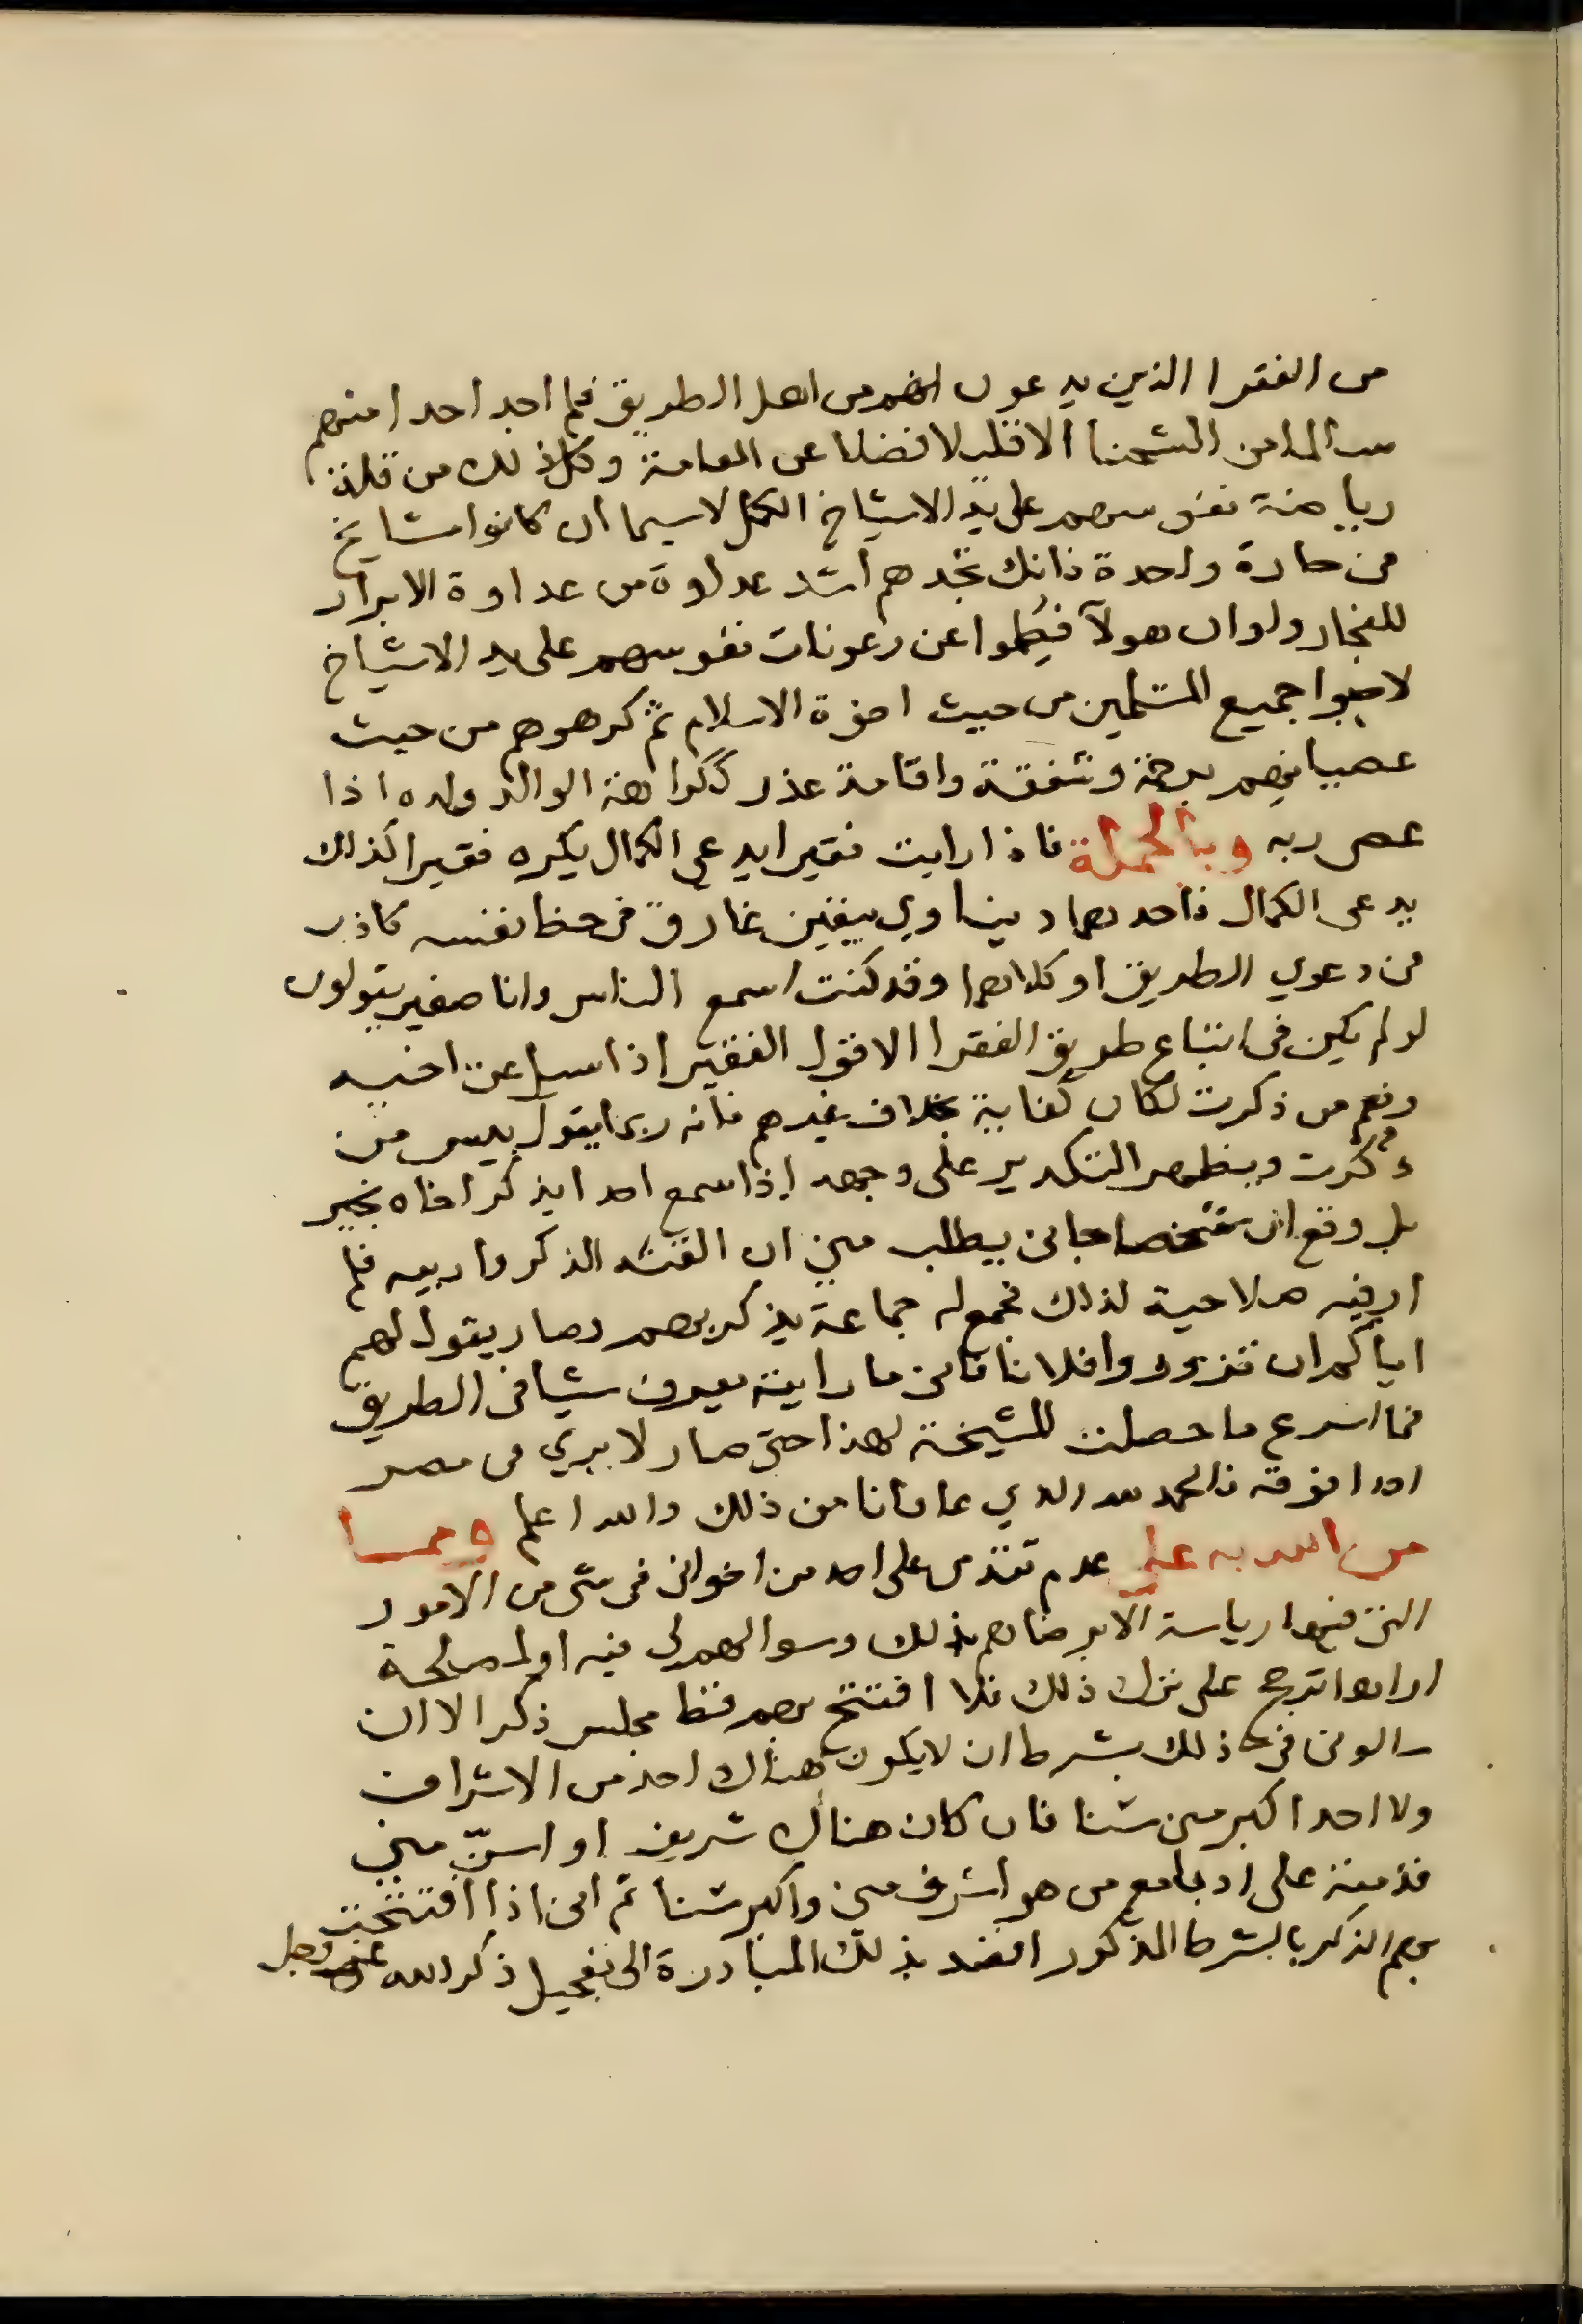 من الفقرا الذين يدعون انهم من اهل الطريق فلم اجد احدا منهم
سالما من الشحنا الا قليلا فضلا عن العامة وكل ذلك من قلة
رياضة نفوسهم على يد الاشياخ الكمل لاسيما ان كانوا مشايخ
من حارة واحدة فانك تجدهم اشد عداوة من عداوة الابرار
للفجار ولو ان هولآ فطموا عن رعونات نفوسهم على يد الاشياخ
لاحبوا جميع المسلمين من حيث اخوة الاسلام ثم كرهوهم من حيث
عصيانهم برحمة وشفقة واقامة عذر ككراهة الوالد ولده اذا
عصى ربه وبالجملة فاذا رايت فقيرا يدعي الكمال يكره فقيرا كذلك
يدعى الكمال فاحدهما دنياوي بيقين غارق في حظ نفسه كاذب
في دعوي الطريق او كلاهما وقد كنت اسمع الناس وانا صغير يقولون
لو لم يكن في اتباع طريق الفقرا الا قول الفقير اذا سيل عن اخيه
ونعم من ذكرت لكان كفاية بخلاف غيرهم فانه ربما يقول بيس من
ذكرت ويظهر التكدير على وجهه اذا سمع احدا يذكر اخاه بخير
بل وقع ان شخصا جاني يطلب مني ان القنه الذكر واربيه فلم
ار فيه صلاحية لذلك فجمع له جماعة يذكر بهم وصار يقول لهم
اياكم ان تزوروا فلانا فاني ما رايته يعرف شيا في الطريق
فما اسرع ما حصلت المشيخة لهذا حتى صار لا يري في مصر
احدا فوقه فالحمد لله الذي عافانا من ذلك والله اعلم ومما
من الله به علي عدم تقدمي على احد من اخواني في شى من الامور
التي فيها رياسة الا برضاهم بذلك وسوالهم لي فيه او لمصلحة
اراها ترجح على ترك ذلك فلا افتتح بهم قط مجلس ذكر الا ان
سالوني في ذلك بشرط ان لا يكون هناك احد من الاشراف
ولا احد اكبر مني سنا فان كان هناك شريف او اسنّ مني
قدمته على ادبا مع من هو اشرف مني واكبر سنا ثم اني اذا افتتحت
بهم الذكر بالشرط المذكور اقصد بذلك المبادرة الى تعجيل ذكر الله عز وجل